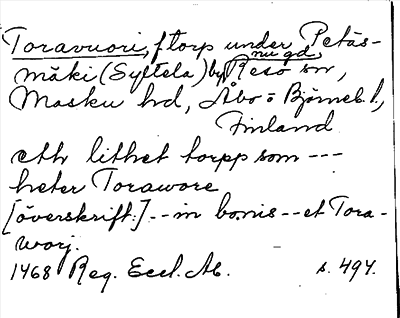 Toravuori, f torp under Petäs-
mäki (Syltela) by, nu gd, Reso sn,
Masku hd, Åbo o Björneb. l,
Finland
eth lithet torpp som ---
heter Torawore
[överskrift:] -- in bonis -- et Tora-
worj.
1468 Reg. Eccl. Ab. s. 494.